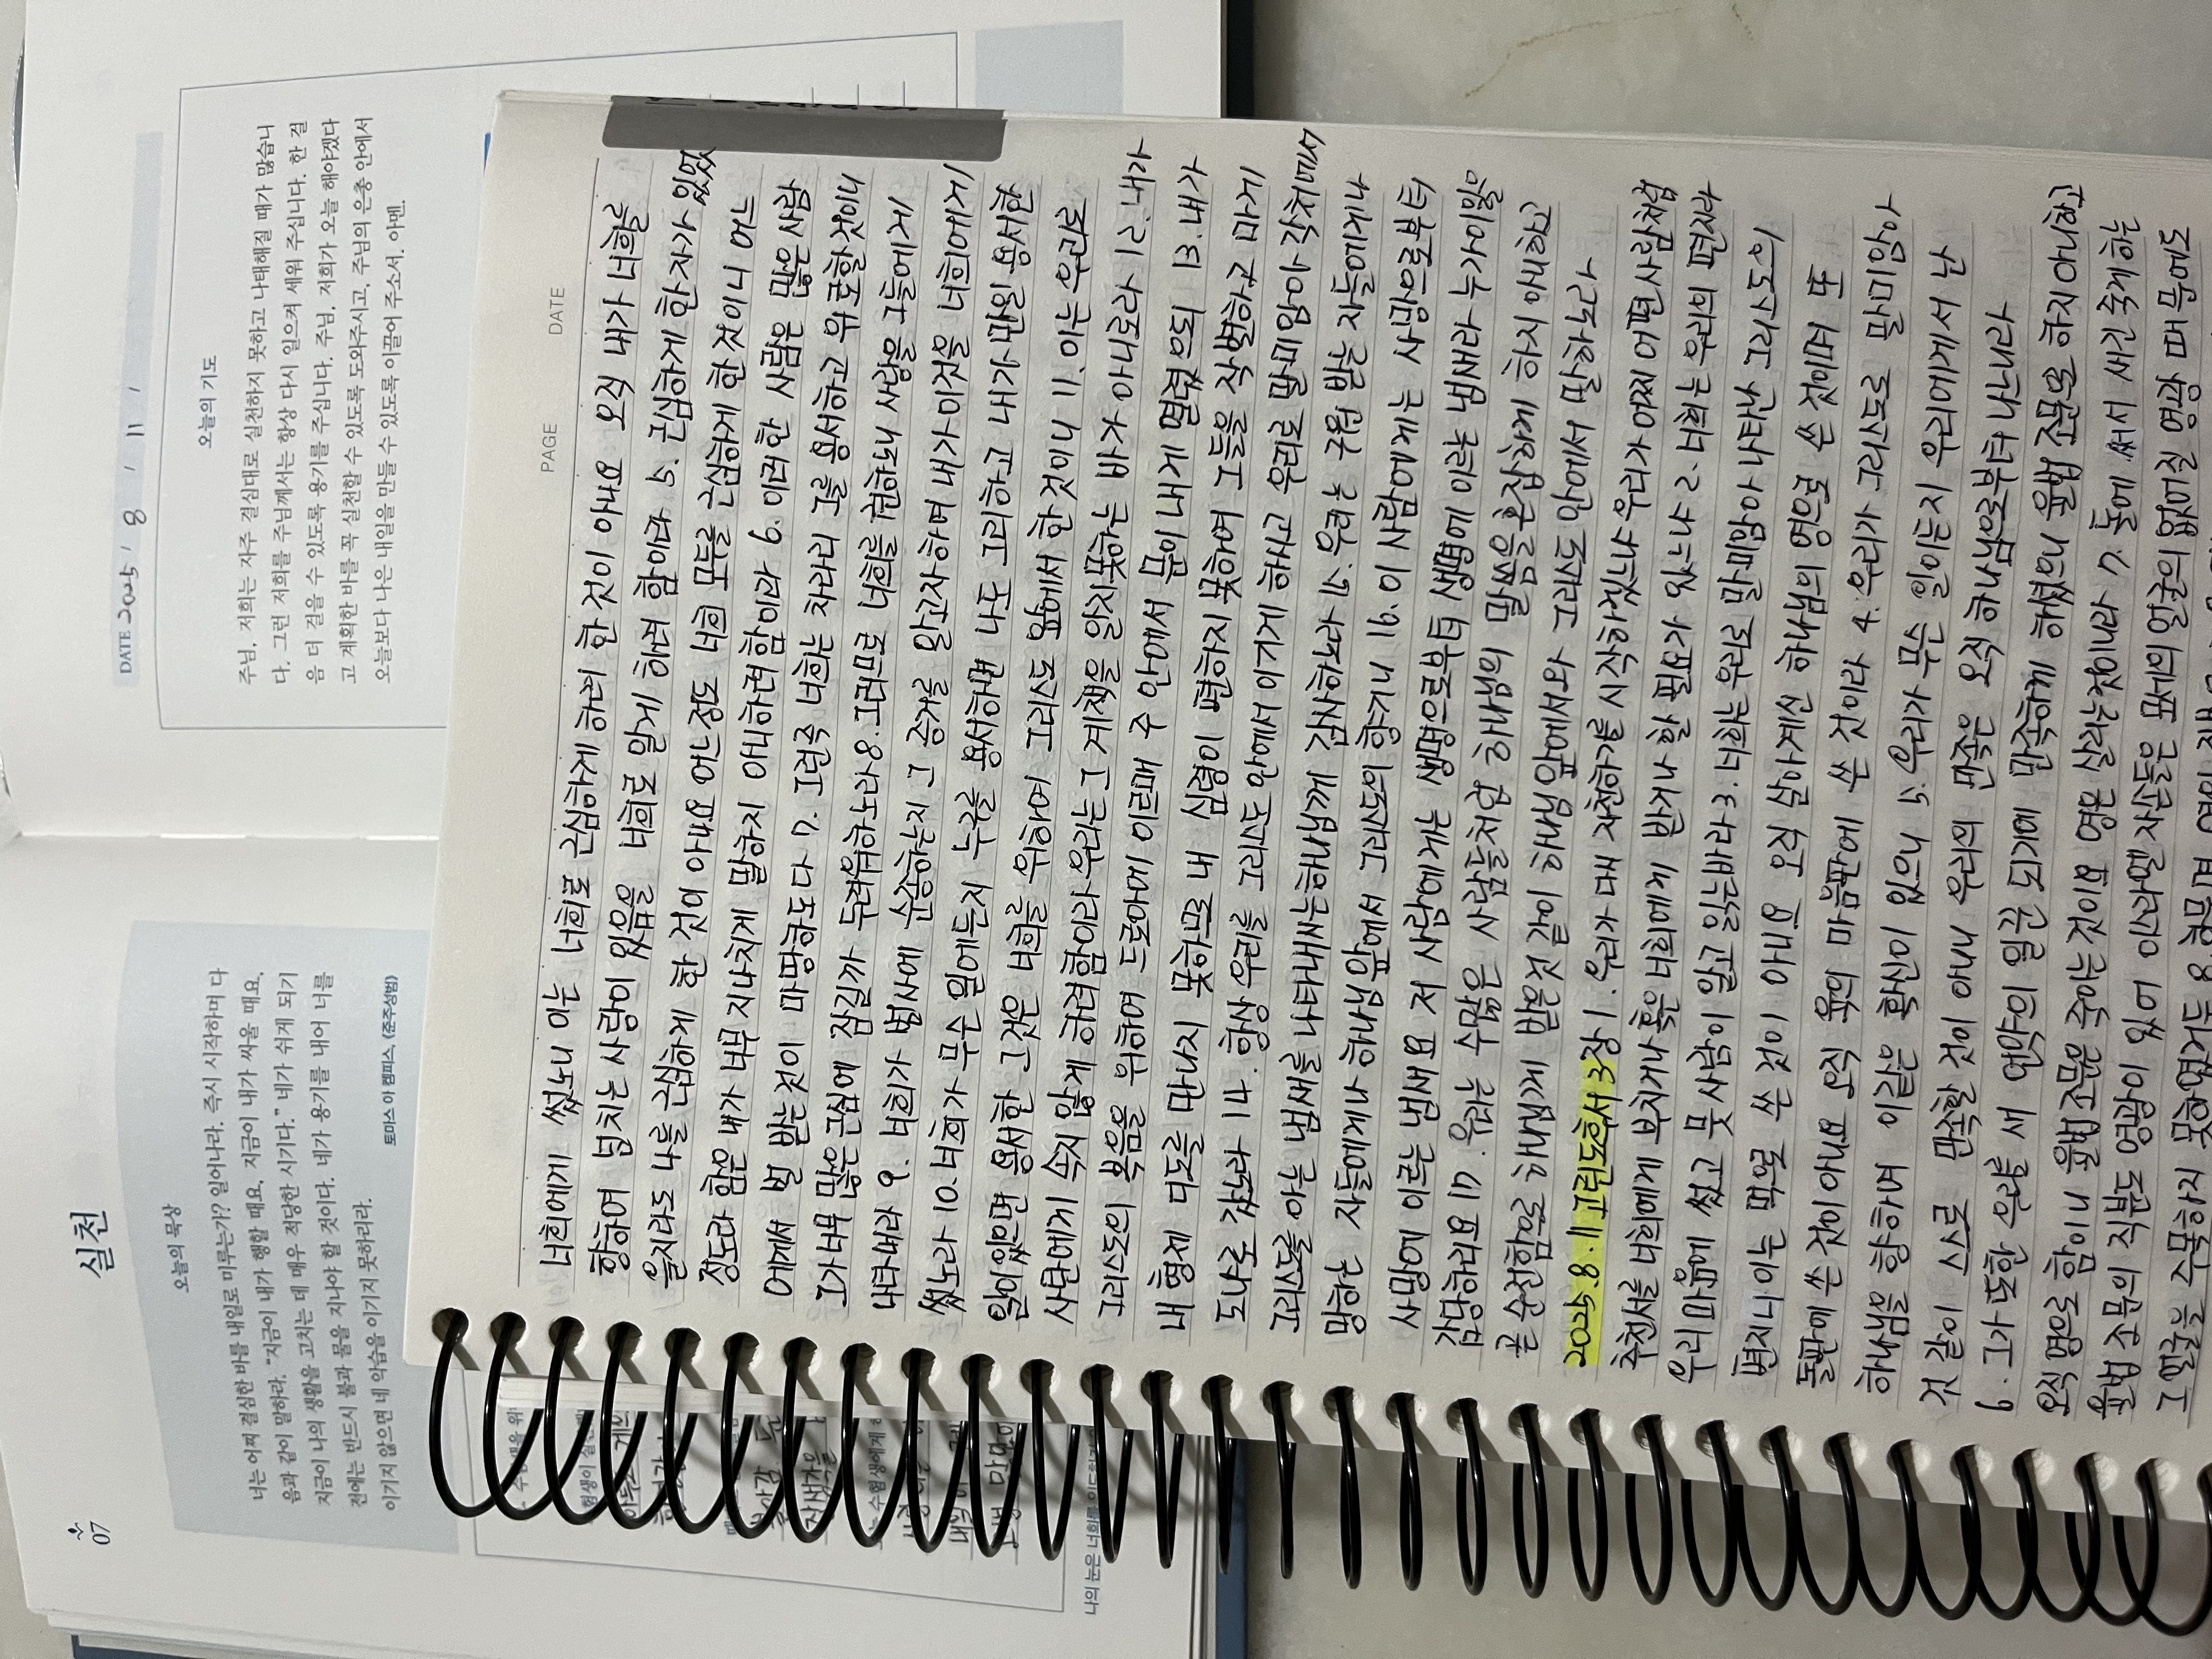 07
실천
오늘의 묵상
너는 어찌 결심한 바를 내일로 미루는가? 일어나라. 즉시 시작하며 다
음과 같이 말하라. “지금이 내가 행할 때요, 지금이 내가 싸울 때요,
지금이 나의 생활을 고치는 데 매우 적당한 시기다.” 네가 쉬게 되기
전에는 반드시 불과 물을 지나야 할 것이다. 네가 용기를 내어 너를
이기지 않으면 네 악습을 이기지 못하리라.
토마스 아 켐피스, 《준주성범》
DATE 2025 / 8 / 11 /
오늘의 기도
주님, 저희는 자주 결심대로 실천하지 못하고 나태해질 때가 많습니
다. 그런 저희를 주님께서는 항상 다시 일으켜 세워 주십니다. 한 걸
음 더 걸을 수 있도록 용기를 주십니다. 주님, 저희가 오늘 해야겠다
고 계획한 바를 꼭 실천할 수 있도록 도와주시고, 주님의 은총 안에서
오늘보다 나은 내일을 만들 수 있도록 이끌어 주소서. 아멘.
PAGE DATE
너희에게 썼노니 이는 너희로 근심하게 하려 한 것이 아니요 오직 내가 너희를
향하여 넘치는 사랑이 있음을 너희로 알게 하려 함이라 5. 근심하게 한 자가 있었
을지라도 나를 근심하게 한 것이 아니요 어느정도 너희 모두를 근심하게 한 것이니 어느
정도라 함은 내가 너무 지나치게 말하지 아니하려 함이라 6. 이러한 사람은 많은 사람
에게서 벌 받는 것이 마땅하도다 7. 그런즉 너희는 차라리 그를 용서하고 위로할 것이니
그가 너무 많은 근심에 잠길까 두려워하노라 8. 그러므로 너희를 권하노니 사랑을 그들에게
나타내라 9. 너희가 범사에 순종하는지 그 증거를 알고자하여 내가 이것을 너희에게
썼노라 10. 너희가 무슨 일에든지 누구를 용서하면 나도 그리하고 내가 만일 용서한
일이 있으면 용서한 그것은 너희를 위하여 그리스도 앞에서 한 것이니 11. 이는 우리로
사탄에게 속지 않게 하려 함이라 우리는 그 계책을 알지 못하는 바가 아니로라 12. 내가
그리스도의 복음을 위하여 드로아에 이르매 주 안에서 문이 내게 열렸으되 13. 내가
내 형제 디도를 만나지 못하므로 내 심령이 편하지 못하여 그들을 작별하고 마게
도냐로 갔노라 14. 항상 우리를 그리스도 안에서 이기게 하시고 우리로 말미암아 각처에서
그리스도를 아는 냄새를 나타내시는 하나님께 감사하노라 15. 우리는 구원 받는 자들에게나
망하는 자들에게나 하나님 앞에서 그리스도의 향기니 16. 이 사람에게는 사망으로부터
사망에 이르는 냄새요 저 사람에게는 생명으로부터 생명에 이르는 냄새라 누가 이 일을
감당하리요 17. 우리는 수많은 사람들처럼 하나님의 말씀을 혼잡하게 하지 아니하고
곧 순전함으로 하나님께 받은 것 같이 하나님 앞에서와 그리스도 안에서 말하노라
2025.8.11 고린도후서 3장 1. 우리가 다시 자천하기를 시작하겠느냐 우리가 어찌 어떤 사람처럼
추천서를 너희에게 부치거나 혹은 너희에게 받거나 할 필요가 있느냐 2. 너희는 우리의 편지라
우리 마음에 썼고 뭇 사람이 알고 읽는 바라 3. 너희는 우리로 말미암아 나타난 그리스도의
편지니 이는 먹으로 쓴 것이 아니요 오직 살아계신 하나님의 영으로 쓴 것이며 또
돌판에 쓴 것이 아니요 오직 육의 마음판에 쓴 것이라 4. 우리가 그리스도로 말미암아
하나님을 향하여 이같은 확신이 있으니 5. 우리가 무슨 일이든지 우리에게서 난
것 같이 스스로 만족할 것이 아니니 우리의 만족은 오직 하나님으로부터 나느니라
6. 그가 또한 우리를 새 언약의 일꾼 되기에 만족하게 하셨으니 율법 조문으로 하지 아니하고
오직 영으로 함이니 율법 조문은 죽이는 것이요 영은 살리는 것이니라 7. 돌에 써서 새긴 죽게 하는
율법 조문의 직분도 영광이 있어 이스라엘 자손들은 모세의 얼굴의 없어질 영광 때문에도
그 얼굴을 주목하지 못하였거든 8. 하물며 영의